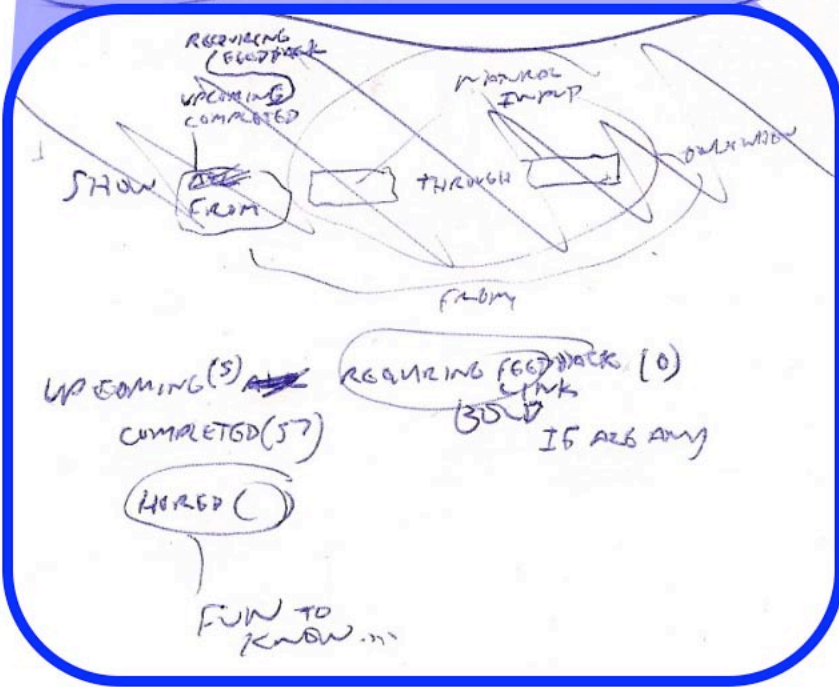 REQUIRING
FEEDBACK
UPCOMING
COMPLETED
NATURAL
INPUT
SHOW
FROM
THROUGH
FROM
UPCOMING (5)
REQUIRING FEEDBACK (0)
LINK
BOLD
IF ARE ANY
COMPLETED (57)
HIRED ( )
FUN TO
KNOW...